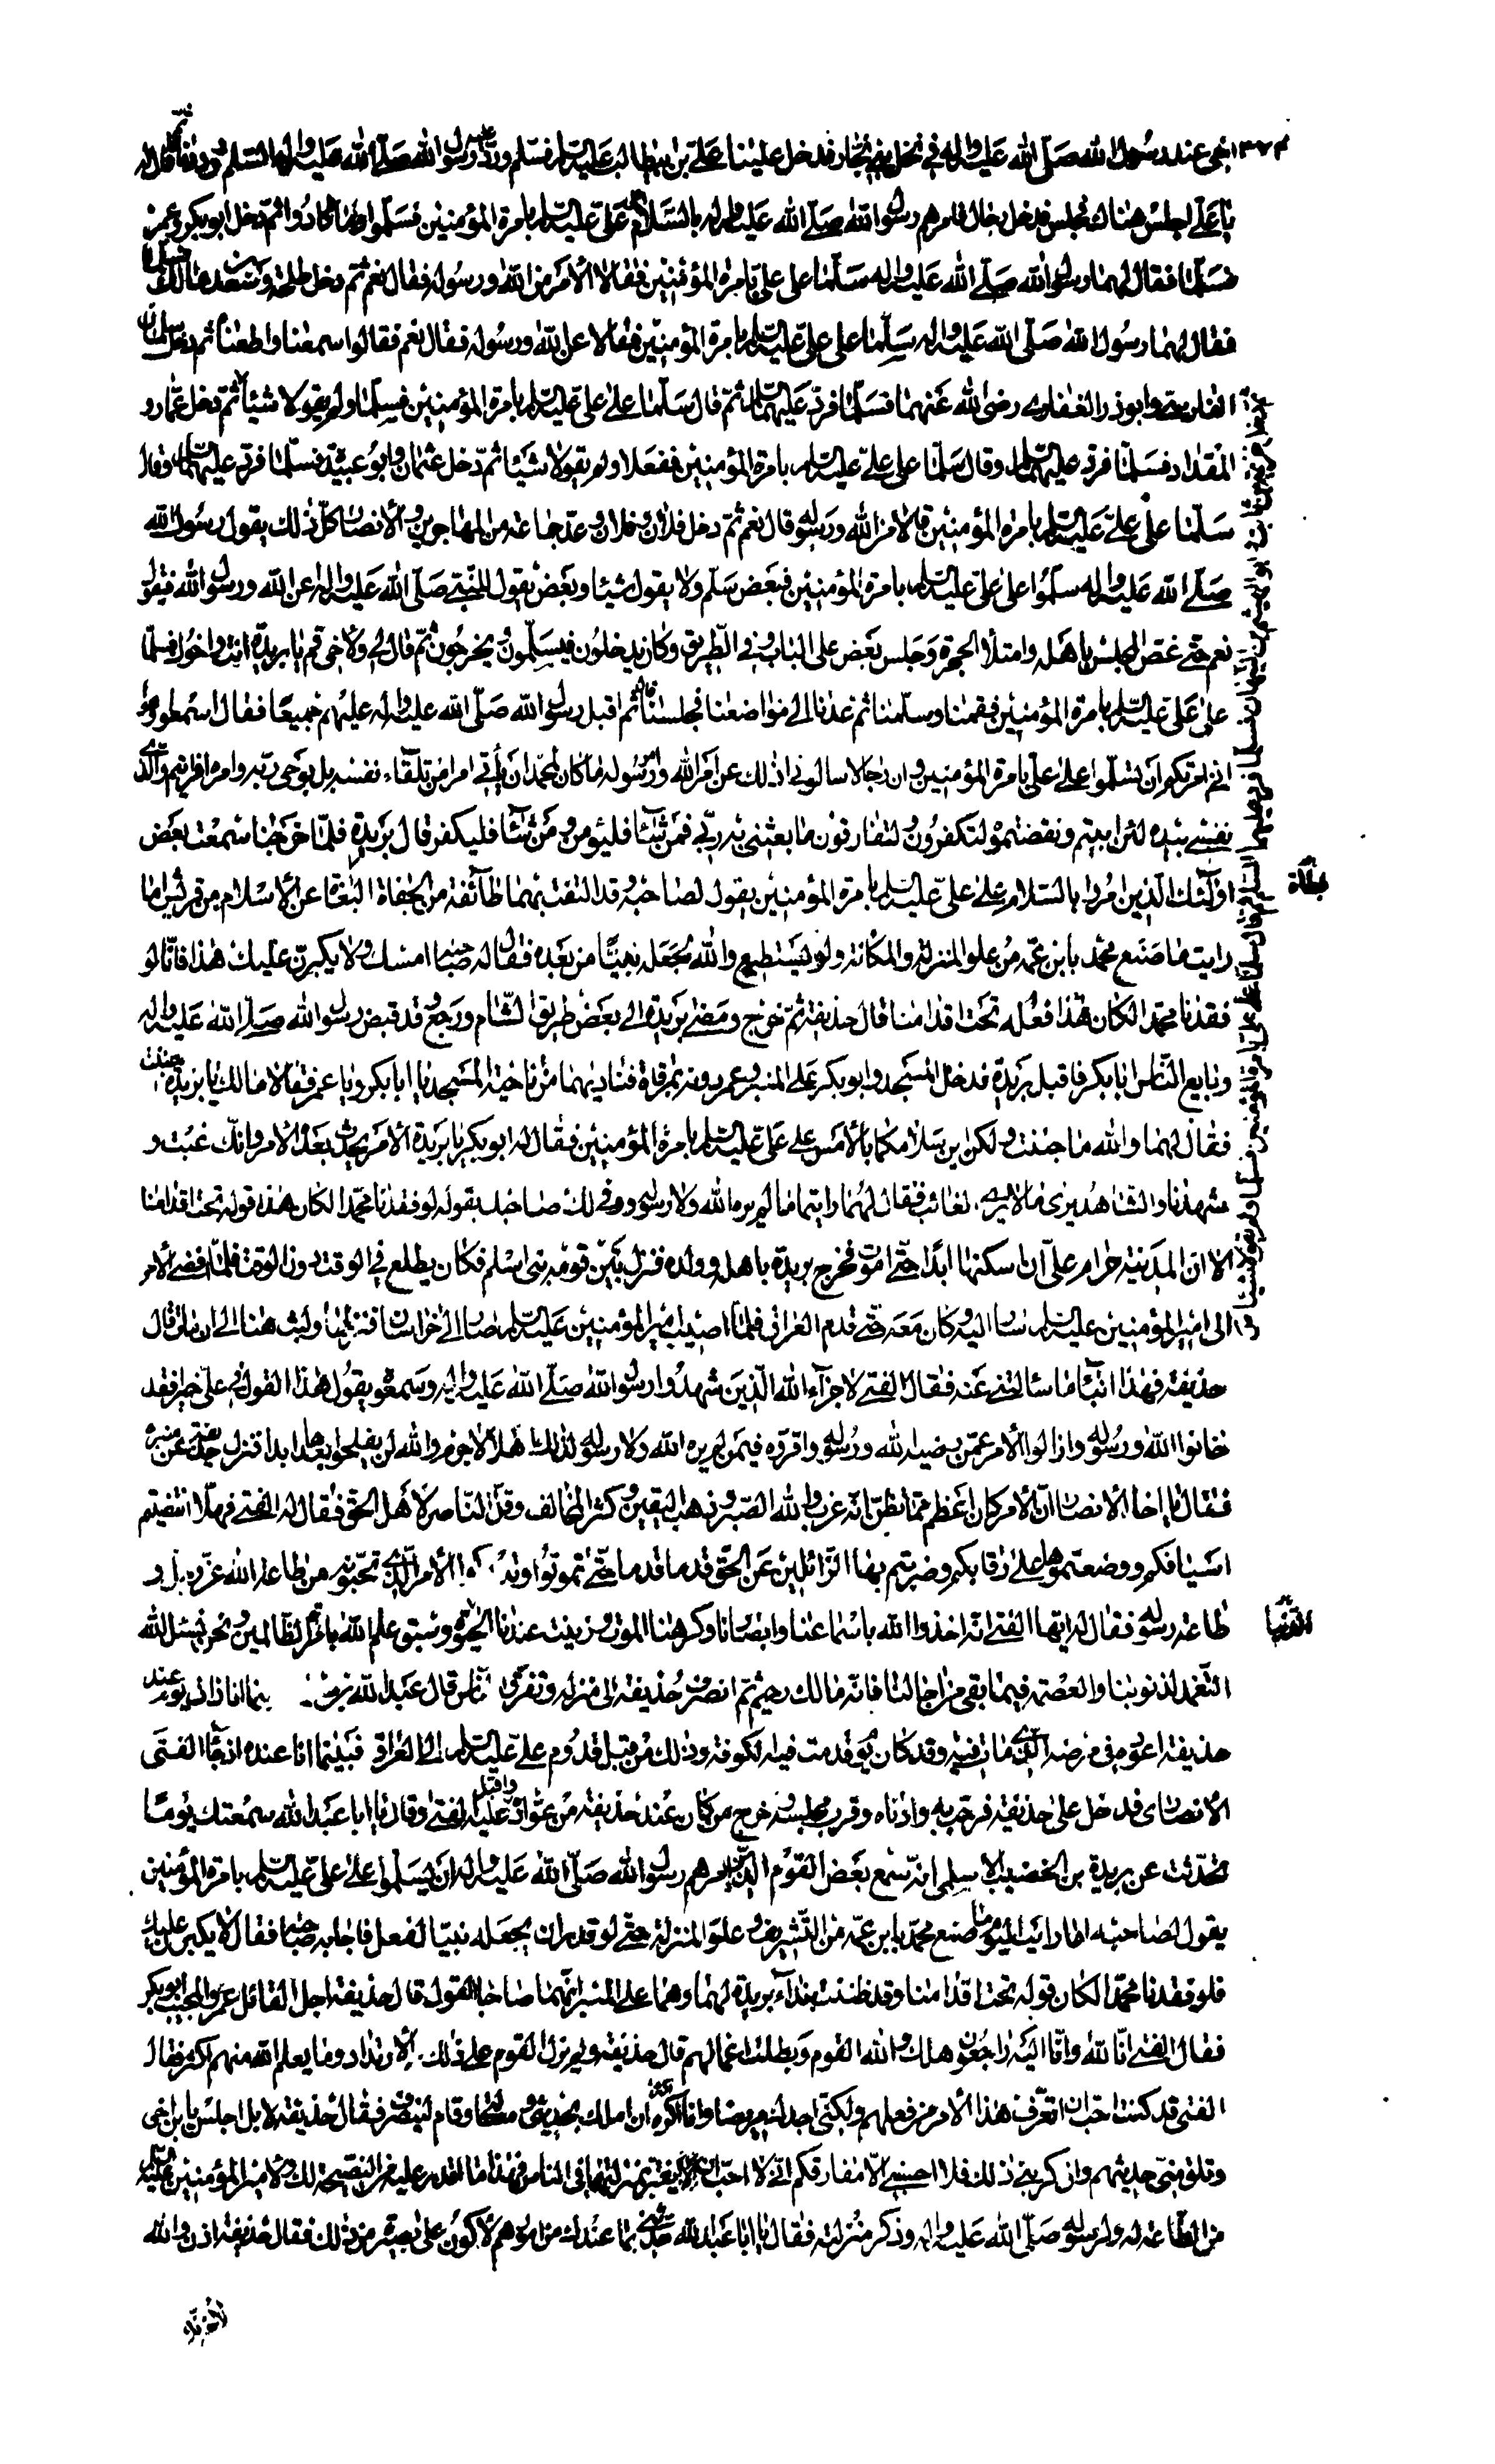 اخي عند رسول الله صلى الله عليه واله في نخل بني النجار فدخل علينا علي بن ابيطالب عليه السلم فسلم ورد عليه رسول الله صلى الله عليه واله السلم ورددنا ثم قال له
يا علي اجلس هناك فجلس فدخل رجال فامرهم رسول الله صلى الله عليه واله بالسلام على علي عليه السلم بامرة المؤمنين فسلموا وما كادوا ثم دخل ابو بكر وعمر
فسلما فقال لهما رسول الله صلى الله عليه واله سلما على علي بامرة المؤمنين فقالا الأمر من الله ورسوله فقال نعم ثم دخل طلحة وسعد بن مالك فسلما
فقال لهما رسول الله صلى الله عليه واله سلما على علي عليه السلم بامرة المؤمنين فقالا عن الله ورسوله فقال نعم فقالوا سمعنا واطعنا ثم دخل سلمان
الفارسي وابوذر الغفاري رضى الله عنهما فسلما فرد عليهما السلم ثم قال سلما على علي عليه السلم بامرة المؤمنين فسلما ولم يقولا شيئا ثم دخل عمار و
المقداد فسلما فرد عليهما السلم وقال سلما على علي عليه السلم بامرة المؤمنين ففعلا ولم يقولا شيئا ثم دخل عثمان وابو عبيدة فسلما فرد عليهما السلم وقال
سلما على علي عليه السلم بامرة المؤمنين قالا من الله ورسوله قال نعم ثم دخل فلان وفلان وعد جماعة من المهاجرين والأنصار كل ذلك يقول رسول الله
صلى الله عليه واله سلموا على علي عليه السلم بامرة المؤمنين فبعض سلم ولا يقول شيئا وبعض يقول للنبي صلى الله عليه واله عن الله ورسوله فيقول
نعم حتى غص المجلس باهله وامتلأ الحجرة وجلس بعض على الباب وفي الطريق وكانوا يدخلون فيسلمون ويخرجون ثم قال لي ولأخي قم يا بريدة انت واخوك فسلما
على علي عليه السلم بامرة المؤمنين فقمنا وسلمنا ثم عدنا الى مواضعنا فجلسنا قال ثم اقبل رسول الله صلى الله عليه واله عليهم جميعا فقال اسمعوا وعوا
اني امرتكم ان تسلموا على علي بامرة المؤمنين وان رجالا سالوني اذلك عن امر الله وامر رسوله ما كان لمحمد ان يأتي امرا من تلقاء نفسه بل بوحي ربه وامره افرايتم والذي
نفسي بيده لئن ابيتم ونقضتموه لتكفرون ولتفارقون ما بعثني به ربي فمن شاء فليؤمن ومن شاء فليكفر قال بريدة فلما خرجنا سمعت بعض
اولئك الذين امروا بالسلام على علي عليه السلم بامرة المؤمنين يقول لصاحبه وقد التفت بهما طائفة من الجفاة البطاء عن الاسلام من قريش اما
رايت ما صنع محمد بابن عمه من علو المنزلة والمكانة ولو يستطيع والله لجعله نبيا من بعده فقال له صاحبه امسك ولا يكبرن عليك هذا فانا لو
فقدنا محمدا لكان هذا فعله تحت اقدامنا قال حذيفة ثم خرج ومضى بريدة الى بعض طريق الشام ورجع وقد قبض رسول الله صلى الله عليه واله
وبايع الناس ابا بكر فاقبل بريدة فدخل المسجد وابو بكر على المنبر وعمر دونه بمرقاة فناديهما من ناحية المسجد يا ابا بكر ويا عمر فقالا مالك يا بريدة اجننت
فقال لهما والله ما جننت ولكن اين سلامكما بالأمس على علي عليه السلم بامرة المؤمنين فقال له ابو بكر يا بريدة الأمر يحدث بعده الامر وانك غبت و
شهدنا والشاهد يرى مالا يرى الغائب فقال لهما رايتما ما لم يره الله ولا رسوله ووفى لك صاحبك بقوله لو فقدنا محمدا لكان هذا قوله تحت اقدامنا
الا ان المدينة حرام علي ان اسكنها ابدا حتى اموت فخرج بريدة باهله وولده فنزل بين قومه بني اسلم فكان يطلع في الوقت دون الوقت فلما افضى الأمر
الى امير المؤمنين عليه السلم سار اليه وكان معه حتى قدم العراق فلما اصيب امير المؤمنين عليه السلم صار الى خراسان فنزلها ولبث هناك الى ان مات قال
حذيفة فهذا انباء ما سالتني عنه فقال الفتى لا جزاء الله الذين شهدوا رسول الله صلى الله عليه واله وسمعوه يقول هذا القول في علي خيرا فقد
خانوا الله ورسوله وازالوا الأمر عمن رضيه الله ورسوله واقروه فيمن لم يره الله ولا رسوله لذلك اهلا لا جرم والله لن يفلحوا بعدها ابدا فنزل حذيفة عن منبره
فقال يا اخا الانصار ان الأمر كان اعظم مما تظن انه عزب والله الصبر وذهب اليقين وكثر المخالف وقل الناصر لأهل الحق فقال له الفتى فهلا انتضيتم
اسيافكم ووضعتموها على رقابكم وضربتم بها الزائلين عن الحق قدما قدما حتى تموتوا او تدركوا الأمر الذي تحبونه من طاعة الله عز وجل و
طاعة رسوله فقال له ايها الفتى انه اخذ والله باسماعنا وابصارنا وكرهنا الموت وزينت عندنا الحيوة وسبق علم الله بامرة الظالمين ونحن نسئل الله
التغمد لذنوبنا والعصمة فيما بقي من اجالنا فانه مالك رحيم ثم انصرف حذيفة الى منزله وتفرق الناس قال عبد الله بن بينما انا ذات يوم عند
حذيفة اعوده في مرضه الذي مات فيه وقد كان يوم قدمت فيه الكوفة وذلك من قبل قدوم علي عليه السلم الى العراق فبينما انا عنده اذ جاء الفتى
الأنصاري فدخل على حذيفة فرحب به وادناه وقرب مجلسه وخرج من كان عند حذيفة من عواده واقبل عليه الفتى وقال يا ابا عبد الله سمعتك يوما
تحدث عن بريدة بن الخضيب الاسلمي انه سمع بعض القوم الذين امرهم رسول الله صلى الله عليه واله ان يسلموا على علي عليه السلم بامرة المؤمنين
يقول لصاحبه اما رايت اليوم ما صنع محمد بابن عمه من التشريف وعلو المنزلة حتى لو قدر ان يجعله نبيا لفعل فاجابه صاحبه فقال لا يكبرن عليك
فلو فقدنا محمدا لكان قوله تحت اقدامنا وقد ظننت نداء بريدة لهما وهما على المنبر انهما صاحبا القول قال حذيفة اجل القائل عمر والمجيب ابو بكر
فقال الفتى انا لله وانا اليه راجعون هلك والله القوم وبطلت اعمالهم قال حذيفة ولم يزل القوم على ذلك الارتداد وما يعلم الله منهم اكثر فقال
الفتى قد كنت احب ان اتعرف هذا الأمر من فعلهم ولكني اجدك مريضا وانا اكره ان املك بحديثي ومسئلتي وقام لينصرف فقال حذيفة لا بل اجلس يا ابن اخي
وتلق مني حديثهم وان كربني ذلك فلا احسبني الا مفارقكم اني لا احب ان تغتر بمنزلتهما في الناس فهذا ما اقدر عليه من النصيحة لك ولأمير المؤمنين عليه السلم
من الطاعة له ولرسوله صلى الله عليه واله وذكر منزلته فقال يا ابا عبد الله حدثني بما عندك من امورهم لأكون على بصيرة من ذلك فقال حذيفة اذن والله